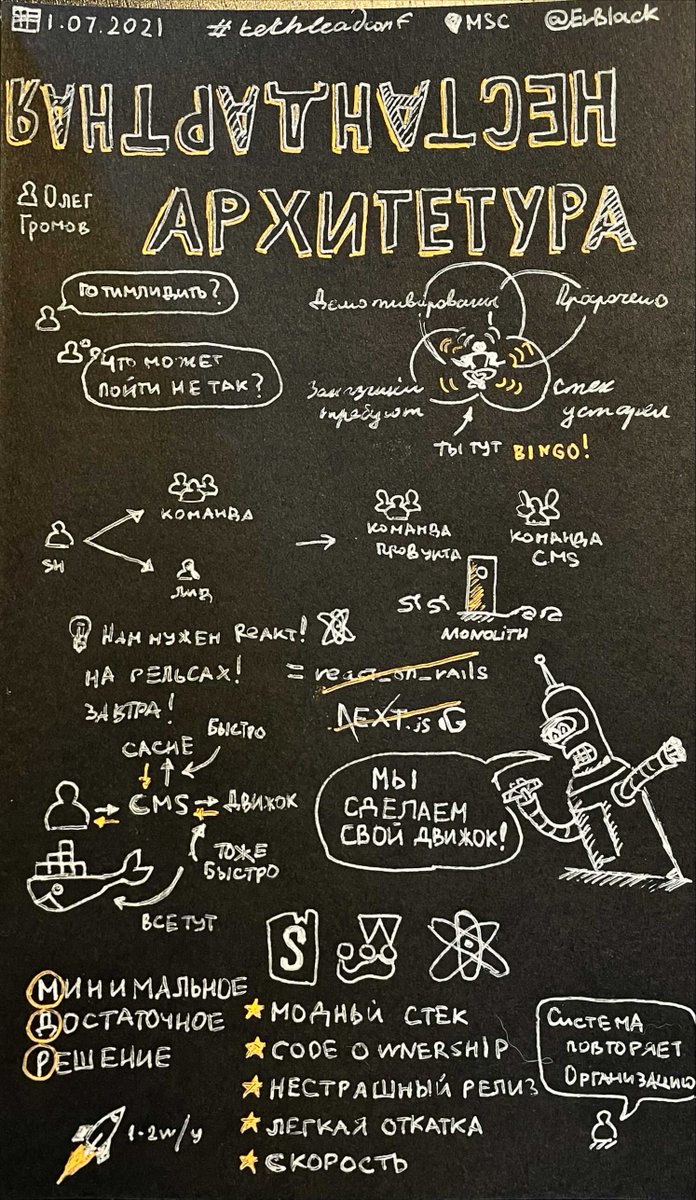 1.07.2021 #techleadconf MSC @ErBlack
НЕСТАНДАРТНАЯ
АРХИТЕТУРА
Олег
Громов
ГО ТИМЛИДИТЬ?
ЧТО МОЖЕТ
ПОЙТИ НЕ ТАК?
Демотивированы
Просрочено
Заказчики
требуют
Стек
устарел
ТЫ ТУТ BINGO!
SH
КОМАНДА
ЛИД
КОМАНДА
ПРОДУКТА
КОМАНДА
CMS
MONOLITH
НАМ НУЖЕН REAKT!
НА РЕЛЬСАХ!
ЗАВТРА!
= react_on_rails
NEXT.js
БЫСТРО
CACHE
CMS
ДВИЖОК
ТОЖЕ
БЫСТРО
ВСЕ ТУТ
МЫ
СДЕЛАЕМ
СВОЙ ДВИЖОК!
S
МИНИМАЛЬНОЕ
ДОСТАТОЧНОЕ
РЕШЕНИЕ
1-2w/y
МОДНЫЙ СТЕК
CODE OWNERSHIP
НЕСТРАШНЫЙ РЕЛИЗ
ЛЕГКАЯ ОТКАТКА
СКОРОСТЬ
СИСТЕМА
ПОВТОРЯЕТ
ОРГАНИЗАЦИЮ